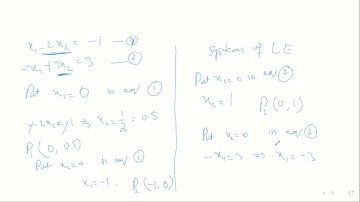 x₁ - 2x₂ = -1 — ①
-x₁ + 3x₂ = 3 — ②
Put x₁ = 0 in eq ①
-2x₂ = -1 ⇒ x₂ = 1/2 = 0.5
P₁ (0, 0.5)
Put x₂ = 0 in eq ①
x₁ = -1, P₂ (-1, 0)
Systems of LE
Put x₁ = 0 in eq ②
x₂ = 1 P₃ (0, 1)
Put x₂ = 0 in eq ②
-x₁ = 3 ⇒ x₁ = -3